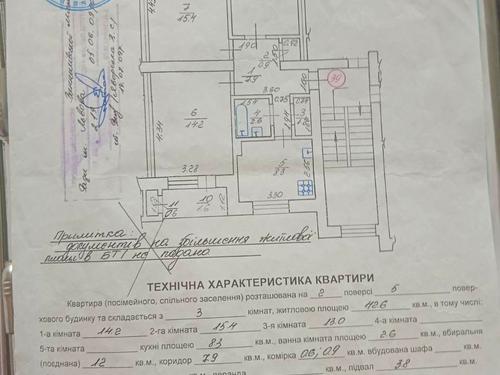 7
15.4
1.90
1
7.9
3.60
1.54
4
2.6
0.75
1.94
3
6
14.2
4.34
3.28
5
8.3
3.30
39
11
0.6
10
1.6
Примітка:
документів на збільшення житлової
площі в БТІ не подано
ТЕХНІЧНА ХАРАКТЕРИСТИКА КВАРТИРИ
Квартира (посімейного, спільного заселення) розташована на 2 поверсі 5 повер-
хового будинку та складається з 3 кімнат, житловою площею 42.6 кв.м., в тому числі:
1-а кімната 14.2 2-га кімната 15.4 3-я кімната 13.0 4-а кімната
5-та кімната кухні площею 8.3 кв.м., ванна кімната площею 2.6 кв.м., вбиральня
(поєднана) 1.2 кв.м., коридор 7.9 кв.м., комірка 0.6, 0.9 кв.м. вбудована шафа
кв.м., веранда кв.м., підвал 3.8 кв.м.